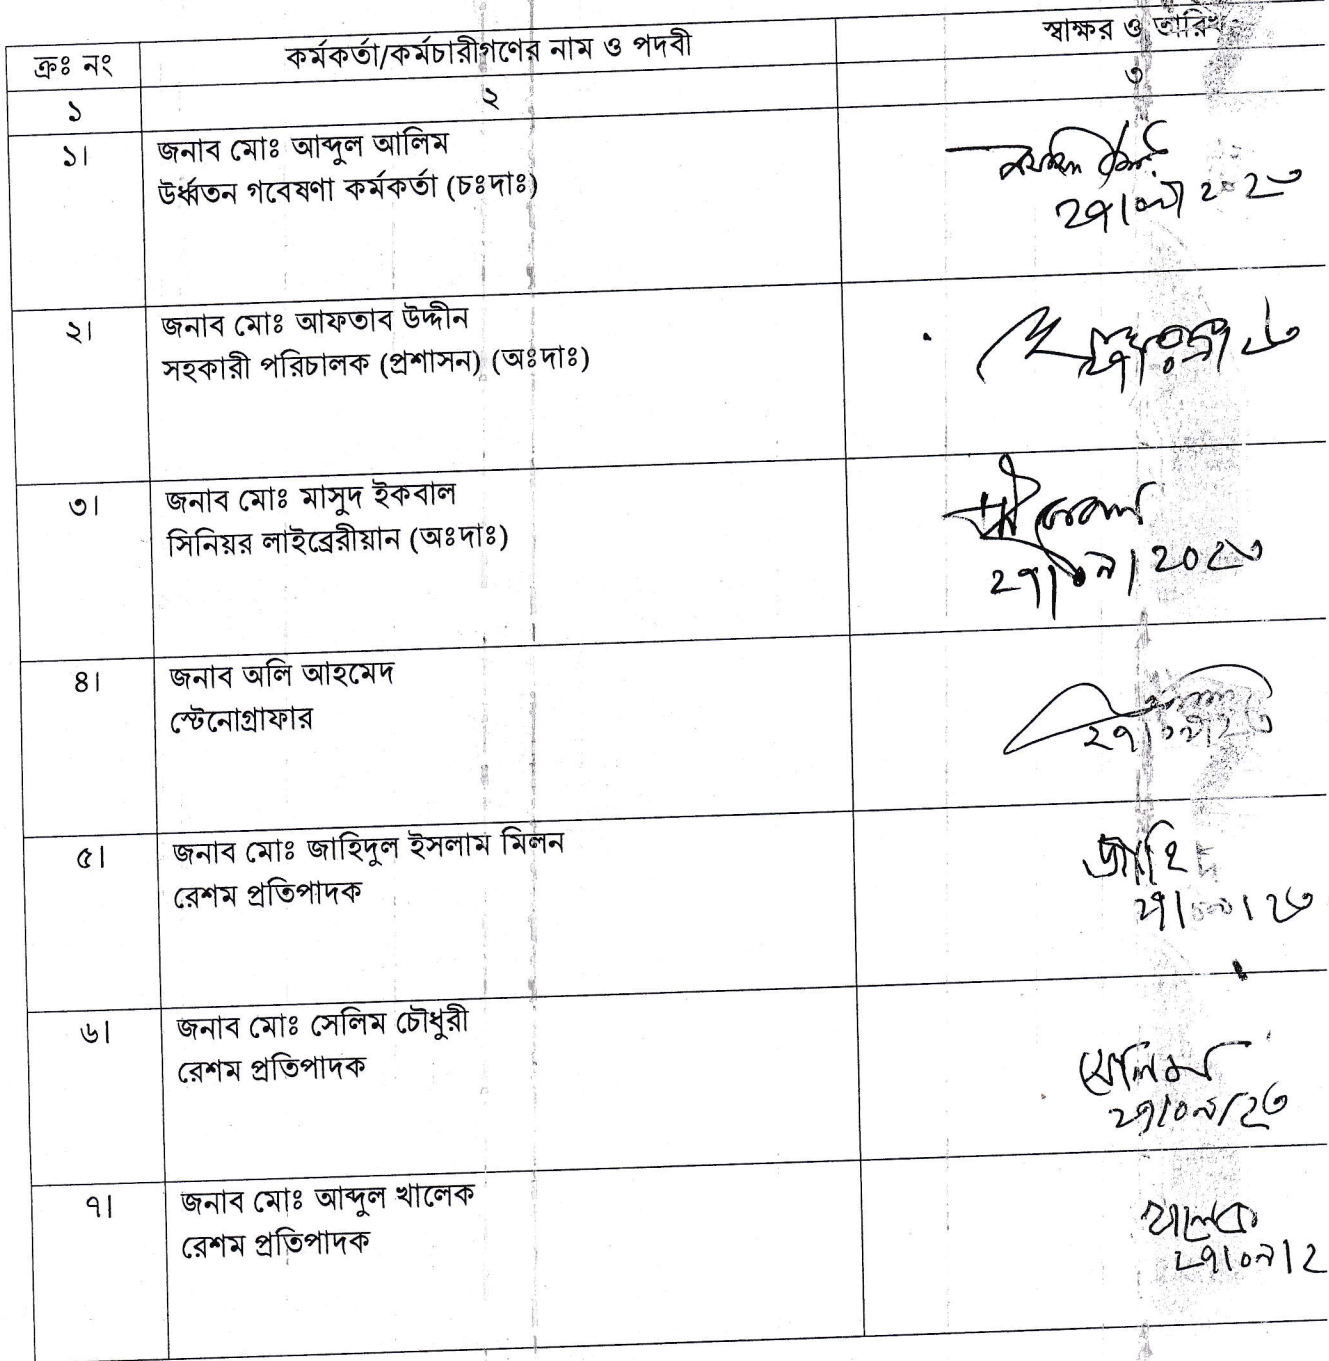 ক্রঃ নং কর্মকর্তা/কর্মচারীগণের নাম ও পদবী স্বাক্ষর ও তারিখ
১ ২ ৩
১। জনাব মোঃ আব্দুল আলিম
উর্ধ্বতন গবেষণা কর্মকর্তা (চঃদাঃ)
২। জনাব মোঃ আফতাব উদ্দীন
সহকারী পরিচালক (প্রশাসন) (অঃদাঃ)
৩। জনাব মোঃ মাসুদ ইকবাল
সিনিয়র লাইব্রেরীয়ান (অঃদাঃ)
২৭/০৯/২০২৩
৪। জনাব অলি আহমেদ
স্টেনোগ্রাফার
৫। জনাব মোঃ জাহিদুল ইসলাম মিলন
রেশম প্রতিপাদক
জাহিদ
৬। জনাব মোঃ সেলিম চৌধুরী
রেশম প্রতিপাদক
সেলিম
২৭/০৯/২৩
৭। জনাব মোঃ আব্দুল খালেক
রেশম প্রতিপাদক
খালেক
২৭/০৯/২